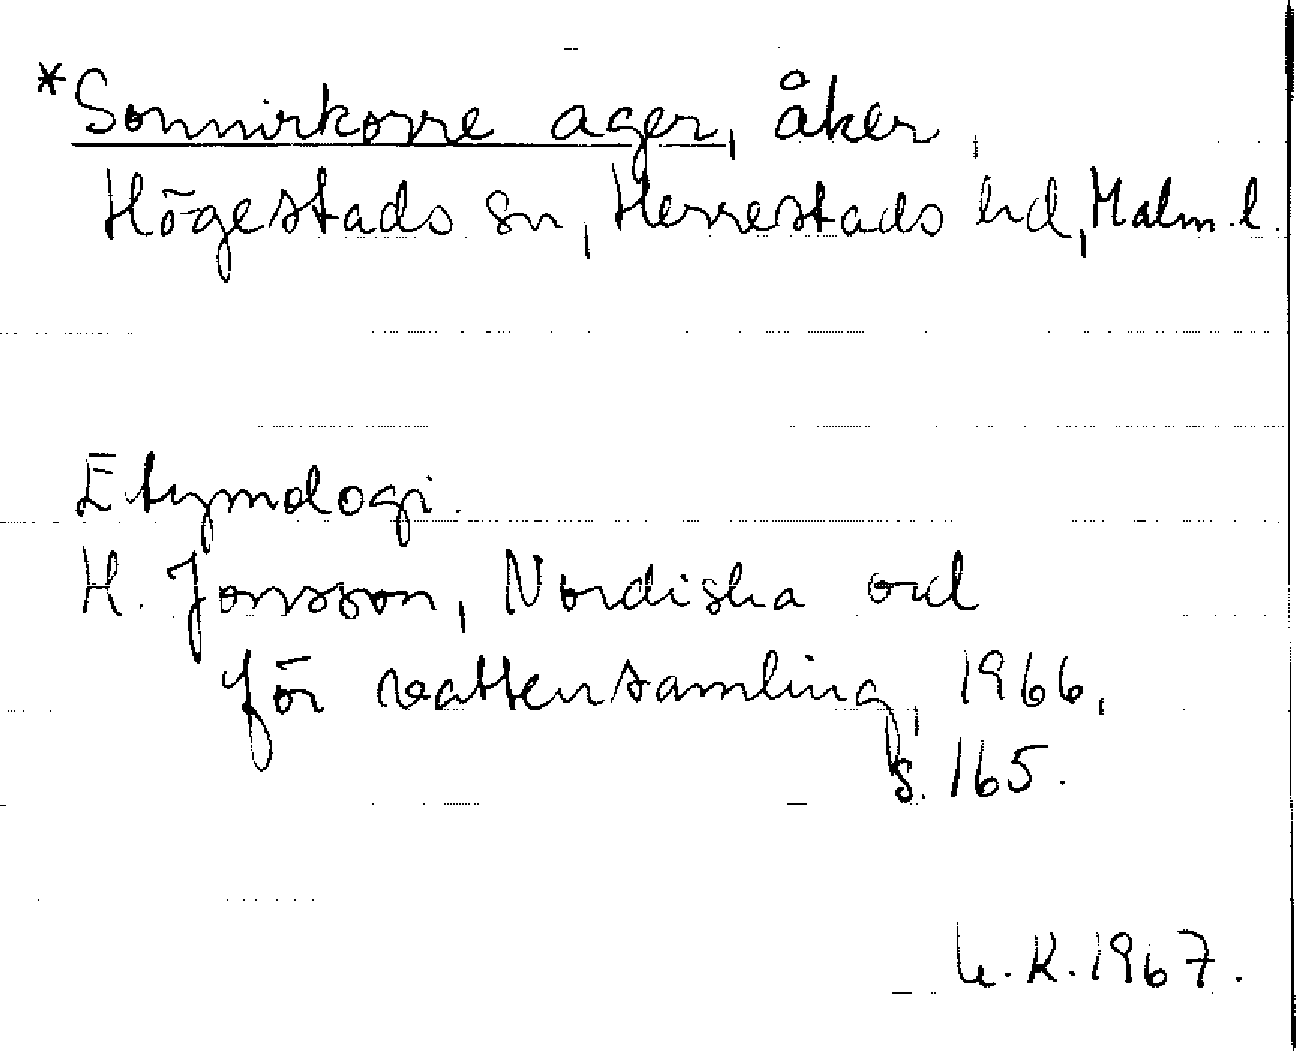 *Sonnirkorre ager, åker,
Högestads sn, Herrestads hd, Malm.l.
Etymologi.
H. Jonsson, Nordiska ord
för vattensamling, 1966,
s. 165.
K. 1967.